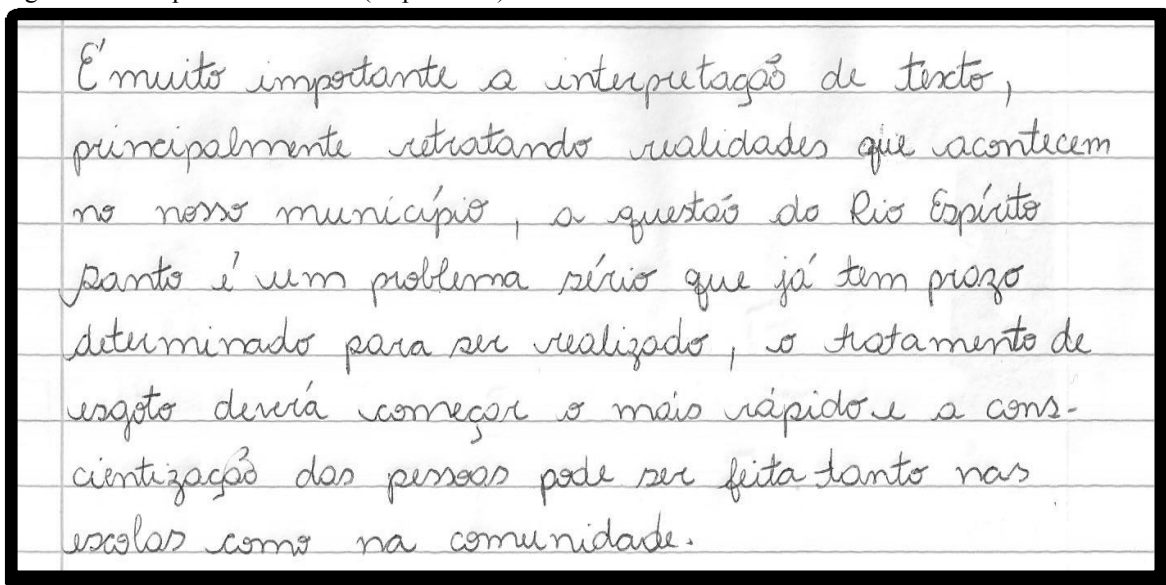 É muito importante a interpretação de texto,
principalmente retratando realidades que acontecem
no nosso município, a questão do Rio Espírito
Santo é um problema sério que já tem prazo
determinado para ser realizado, o tratamento de
esgoto deveria começar o mais rápido e a cons-
cientização das pessoas pode ser feita tanto nas
escolas como na comunidade.